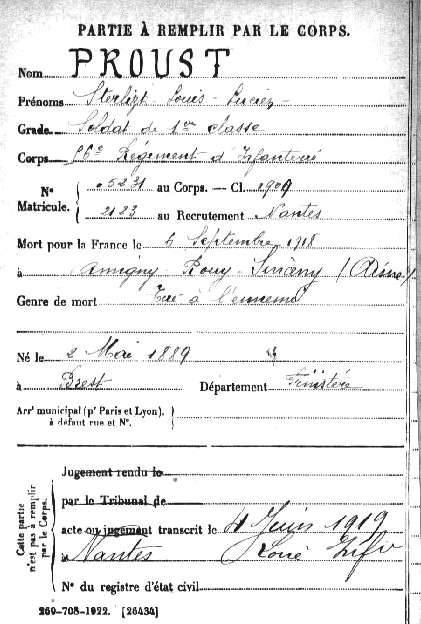 PARTIE À REMPLIR PAR LE CORPS.
Nom PROUST
Prénoms Louis
Grade Soldat de 1ère classe
Corps Régiment d'Infanterie
05231 au Corps. — Cl. 1909
Nos Matricule.
2123 au Recrutement Nantes
Mort pour la France le Septembre 1918
à Amigny-Rouy (Aisne)
Genre de mort Tué à l'ennemi
Né le 2 Mai 1889
à Brest Département Finistère
Arrt municipal (pr Paris et Lyon),
à défaut rue et No.
Cette partie n'est pas à remplir par le Corps.
Jugement rendu le
par le Tribunal de
acte ou jugement transcrit le 4 Juin 1919
à Nantes
No du registre d'état civil
269-708-1922. [26434]